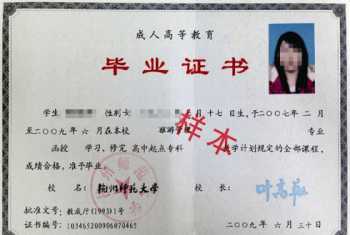 成人高等教育
毕业证书
学生 性别女 月十七日生,于二〇〇七年二月
至二〇〇九年六月在本校 旅游管理 专业
函授 学习,修完高中起点专科 教学计划规定的全部课程,
成绩合格,准予毕业。
样本
校名: 杭州师范大学 校长: 叶高翔
批准文号:教成厅(1993)1号
二〇〇九年六月三十日